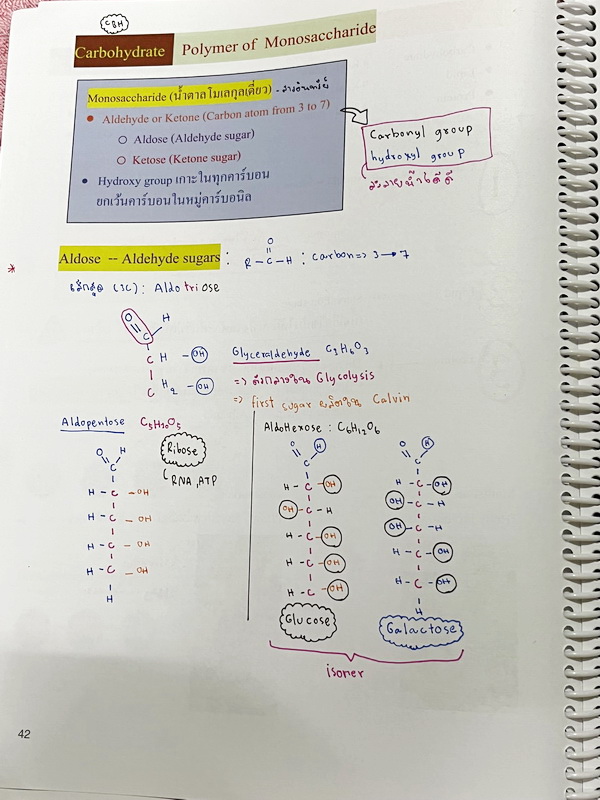 CBH
Carbohydrate Polymer of Monosaccharide
Monosaccharide (น้ำตาลโมเลกุลเดี่ยว) -
Aldehyde or Ketone (Carbon atom from 3 to 7)
Aldose (Aldehyde sugar)
Ketose (Ketone sugar)
Hydroxy group เกาะในทุกคาร์บอน
ยกเว้นคาร์บอนในหมู่คาร์บอนิล
Carbonyl group
hydroxyl group
ละลายน้ำได้ดี
Aldose -- Aldehyde sugars : R - C - H : Carbon => 3 → 7
O
* เล็กสุด (3C) : Aldotriose
O H
C
C H - OH Glyceraldehyde C3H6O3
C H2 - OH => ตัวกลางใน Glycolysis
=> first sugar ผลิตใน Calvin
Aldopentose C5H10O5
Ribose
RNA, ATP
O H
C
H - C - OH
H - C - OH
H - C - OH
H - C - OH
H
AldoHexose : C6H12O6
O H
C
H - C - OH
OH - C - H
H - C - OH
H - C - OH
H - C - OH
Glucose
O H
C
H - C - OH
OH - C - H
OH - C - H
H - C - OH
H - C - OH
H
Galactose
isoner
42